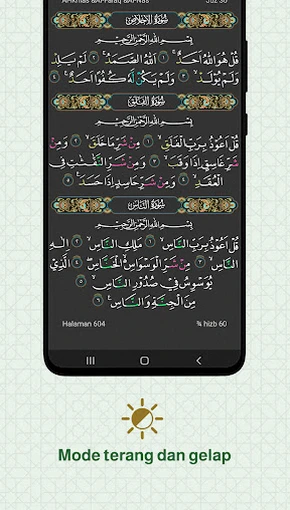 Al-Ikhlas & Al-Falaq & An-Nas Juz 30
سُورَةُ الإِخْلَاصِ
بِسْمِ اللَّهِ الرَّحْمَٰنِ الرَّحِيمِ
قُلْ هُوَ اللَّهُ أَحَدٌ ١ اللَّهُ الصَّمَدُ ٢ لَمْ يَلِدْ
وَلَمْ يُولَدْ ٣ وَلَمْ يَكُن لَّهُ كُفُوًا أَحَدٌ ٤
سُورَةُ الْفَلَقِ
بِسْمِ اللَّهِ الرَّحْمَٰنِ الرَّحِيمِ
قُلْ أَعُوذُ بِرَبِّ الْفَلَقِ ١ مِن شَرِّ مَا خَلَقَ ٢ وَمِن
شَرِّ غَاسِقٍ إِذَا وَقَبَ ٣ وَمِن شَرِّ النَّفَّاثَاتِ فِي
الْعُقَدِ ٤ وَمِن شَرِّ حَاسِدٍ إِذَا حَسَدَ ٥
سُورَةُ النَّاسِ
بِسْمِ اللَّهِ الرَّحْمَٰنِ الرَّحِيمِ
قُلْ أَعُوذُ بِرَبِّ النَّاسِ ١ مَلِكِ النَّاسِ ٢ إِلَٰهِ
النَّاسِ ٣ مِن شَرِّ الْوَسْوَاسِ الْخَنَّاسِ ٤ الَّذِي
يُوَسْوِسُ فِي صُدُورِ النَّاسِ ٥
مِنَ الْجِنَّةِ وَالنَّاسِ ٦
Halaman 604 ¾ hizb 60
Mode terang dan gelap